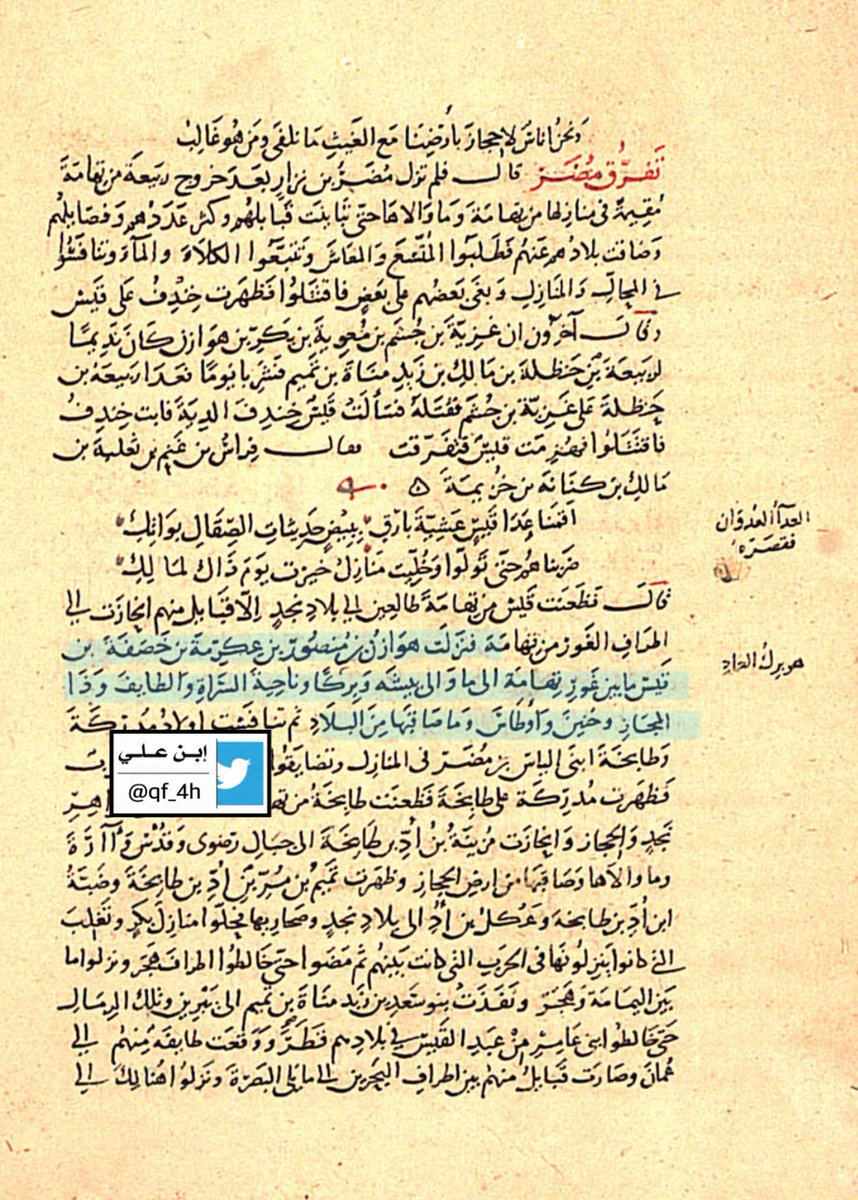 ونحن اناس لا حجاز بأرضنا مع الغيث ما نلفى ومن هو غالب
تفرق مضر قال فلم تزل مضر بن نزار بعد خروج ربيعة من تهامة
مقيمة في منازلها من تهامة وما والاها حتى تباينت قبايلهم وكثر عددهم وفصايلهم
وضاقت بلادهم عنهم فطلبوا المتسع والمعاش وتتبعوا الكلاء والماء وتنافسوا
في المحال والمنازل وبغى بعضهم على بعض فاقتتلوا فظهرت خندف على قيس
وقال آخرون ان غزية بن جشم بن معوية بن بكر بن هوازن كان نديما
لربيعة بن حنظلة بن مالك بن زيد مناة بن تميم فشربا يوما فعدا ربيعة بن
حنظلة على غزية بن جشم فقتله فسألت قيس خندف الدية فابت خندف
فاقتتلوا فهزمت قيس فتفرقت فقال فراس بن غنم بن ثعلبة بن
مالك بن كنانة بن خزيمة
اقمنا عدا قيس عشية بارق ببيض حديثات الصقال بواتك
ضربناهم حتى تولوا وخليت منازل حيزت يوم ذاك لمالك
قال فظعنت قيس من تهامة طالعين الى بلاد نجد الا قبايل منهم انحازت الى
اطراف الغور من تهامة فنزلت هوازن بن منصور بن عكرمة بن خصفة بن
قيس ما بين غور تهامة الى ما والى بيشه وبركا وناحية السراة والطايف وذا
المجاز وحنين واوطاس وما صاقبها من البلاد ثم تنافست اولاد مدركة
وطابخة ابنى الياس بن مضر في المنازل وتضايقوا
فظهرت مدركة على طابخة فظعنت طابخة من
نجد والحجاز وانحازت مزينة بن اد بن طابخة الى جبال رضوى وقدس وآارة
وما والاها وصاقبها من ارض الحجاز وظهرت تميم بن مر بن اد بن طابخة وضبة
ابن اد بن طابخة وعكل بن اد الى بلاد نجد وصحاريها فحلوا منازل بكر وتغلب
التي كانوا ينزلونها في الحرب التي كانت بينهم ثم مضوا حتى خالطوا اطراف هجر ونزلوا ما
بين اليمامة وهجر ونفذت بنو سعد بن زيد مناة بن تميم الى يبرين وتلك الرمال
حتى خالطوا بنى عامر من عبد القيس في بلادهم قطر ووقعت طايفة منهم الى
عمان وصارت قبايل منهم بين اطراف البحرين الى ما يلي البصرة ونزلوا هنالك الى
العدآ العدوان
فقصره
هو برك الغماد
إبن علي
@qf_4h